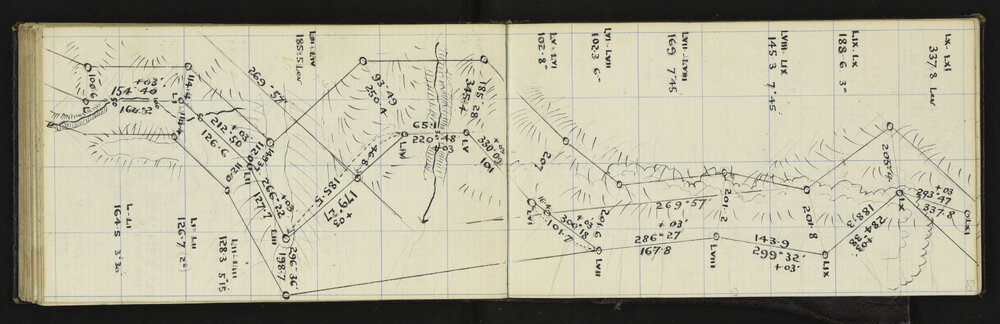 LIII-LIV
185·5 Lev
LV-LVI
102·8"
LVI-LVII
102·3 6"
LVII-LVIII
169· 7°45'
LVIII-LIX
145·3 7°45'
LIX-LX
188·6 3°
LX-LXI
337·8 Lev
100·6
+03'
154°40'
164·2
114·4
LI
+03'
212°50'
126·6
269°57'
93°49
250·4
185°28'
345·4
65·1
220
48
+03
LV
+03
330°02
101
LIV
46·8
185·5
179°27
+03'
120
LII
+03'
266°22
127·7
LIII
296°36'
198·7
L-LI
164·5 3°30'
LI-LII
126·7 2°
LII-LIII
128·3 5°15'
207
LVI
+03'
300°18
101·7
201·6
LVII
269°57'
+03'
286°27
167·8
201·2
LVIII
143·9
299°32'
+03'
201·8
LIX
205·4
188·3
284°38'
+03'
LX
+03
293°47
337·8
LXI
50